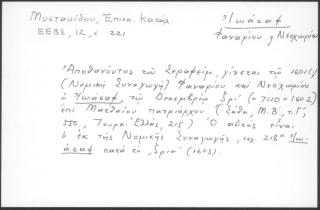 Μυστακίδου, Επισκ. Κατάλ.
Ἰωάσαφ
ΕΕΒΣ, 12, σ 221
Φαναρίου & Νεοχωρίου
Ἀποθανόντος τοῦ Σεραφείμ, γίνεται τῷ 1601(;)
(Νομική Συναγωγή) Φαναρίου καὶ Νεοχωρίου
ὁ Ἰωάσαφ, τῷ Δεκεμβρίῳ ͵ζρι´ (= 7110 = 1602)
ἐπὶ Ματθαίου πατριάρχου (Σάθα, Μ.Β´, τ. Γ´,
550, Τουρκ. Ἑλλάς, 215) Ὁ αὐτὸς εἶναι
ὁ ἐκ τῆς Νομικῆς Συναγωγῆς, σελ. 218α Ἰω-
άσαφ κατὰ τὸ ͵ζρια´ (1603).